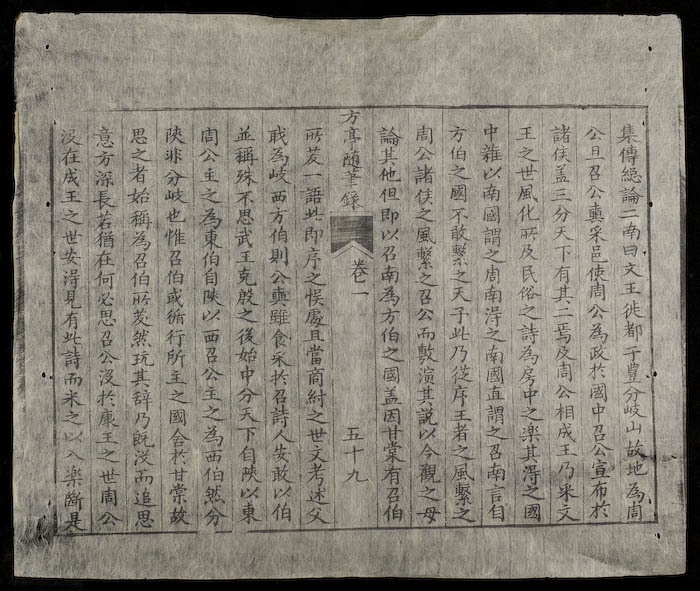 集傳總論二南曰文王徙都于豊分岐山故地為周
公旦召公奭采邑使周公為政於國中召公宣布於
諸侯盖三分天下有其二焉及周公相成王乃采文
王之世風化所及民俗之詩為房中之楽其淂之國
中雜以南國謂之周南淂之南國直謂之召南言自
方伯之國不敢繫之天子此乃從序王者之風繫之
周公諸侯之風繫之召公而敷演其説以今觀之毋
論其他但即以召南為方伯之國盖因甘棠有召伯
方亭随筆録 卷一 五十九
所茇一語此即序之悮處且當商紂之世文考述父
戝為岐西方伯則公奭雖食采於召詩人安敢以伯
並稱殊不思武王克殷之後始中分天下自陕以東
周公主之為東伯自陕以西召公主之為西伯然分
陕非分岐也惟召伯或循行所主之國舍於甘棠故
思之者始稱為召伯所茇然玩其辞乃既没而追思
意方深長若猶在何必思召公沒於康王之世周公
沒在成王之世安淂見有此詩而采之以入楽斷是